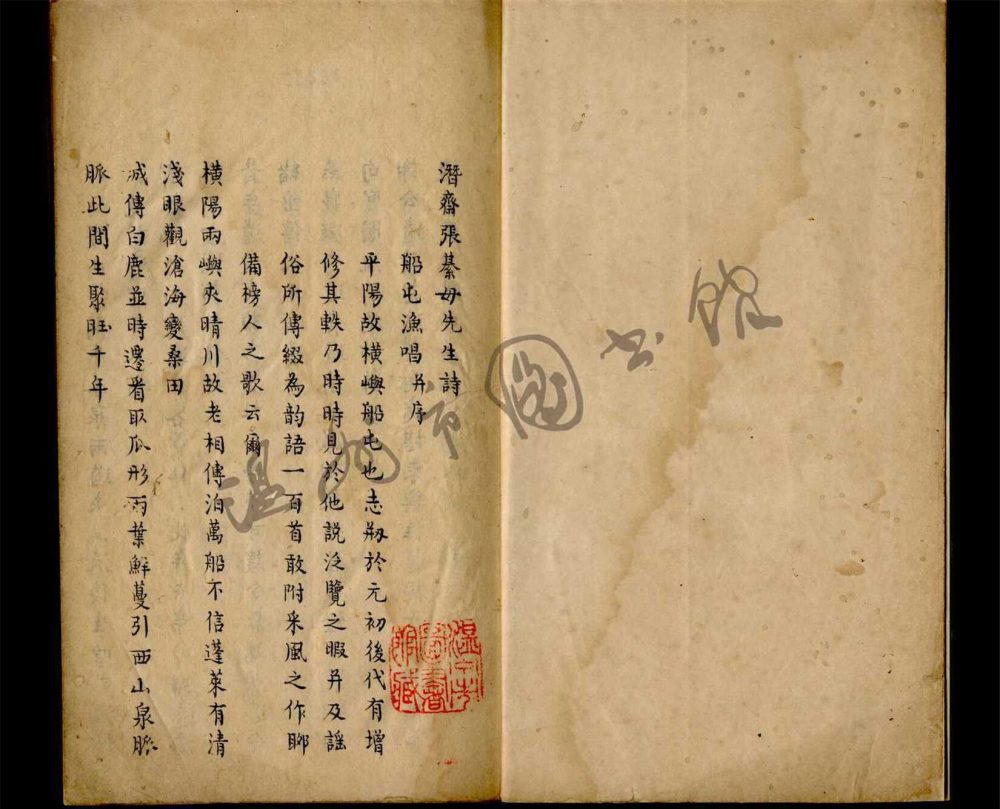 潛齋張綦毋先生詩
船屯漁唱并序
平陽故橫嶼船屯也志剏於元初後代有增
修其軼乃時時見於他說泛覽之暇并及謡
俗所傳綴為韵語一百首敢附采風之作聊
備榜人之歌云爾
橫陽兩嶼夾晴川故老相傳泊萬船不信蓬萊有清
淺眼觀滄海變桑田
城傳白鹿並時遷看取瓜形兩葉鮮蔓引西山泉脈
脈此間生聚旺千年
溫州市圖書館藏
溫州市圖書館